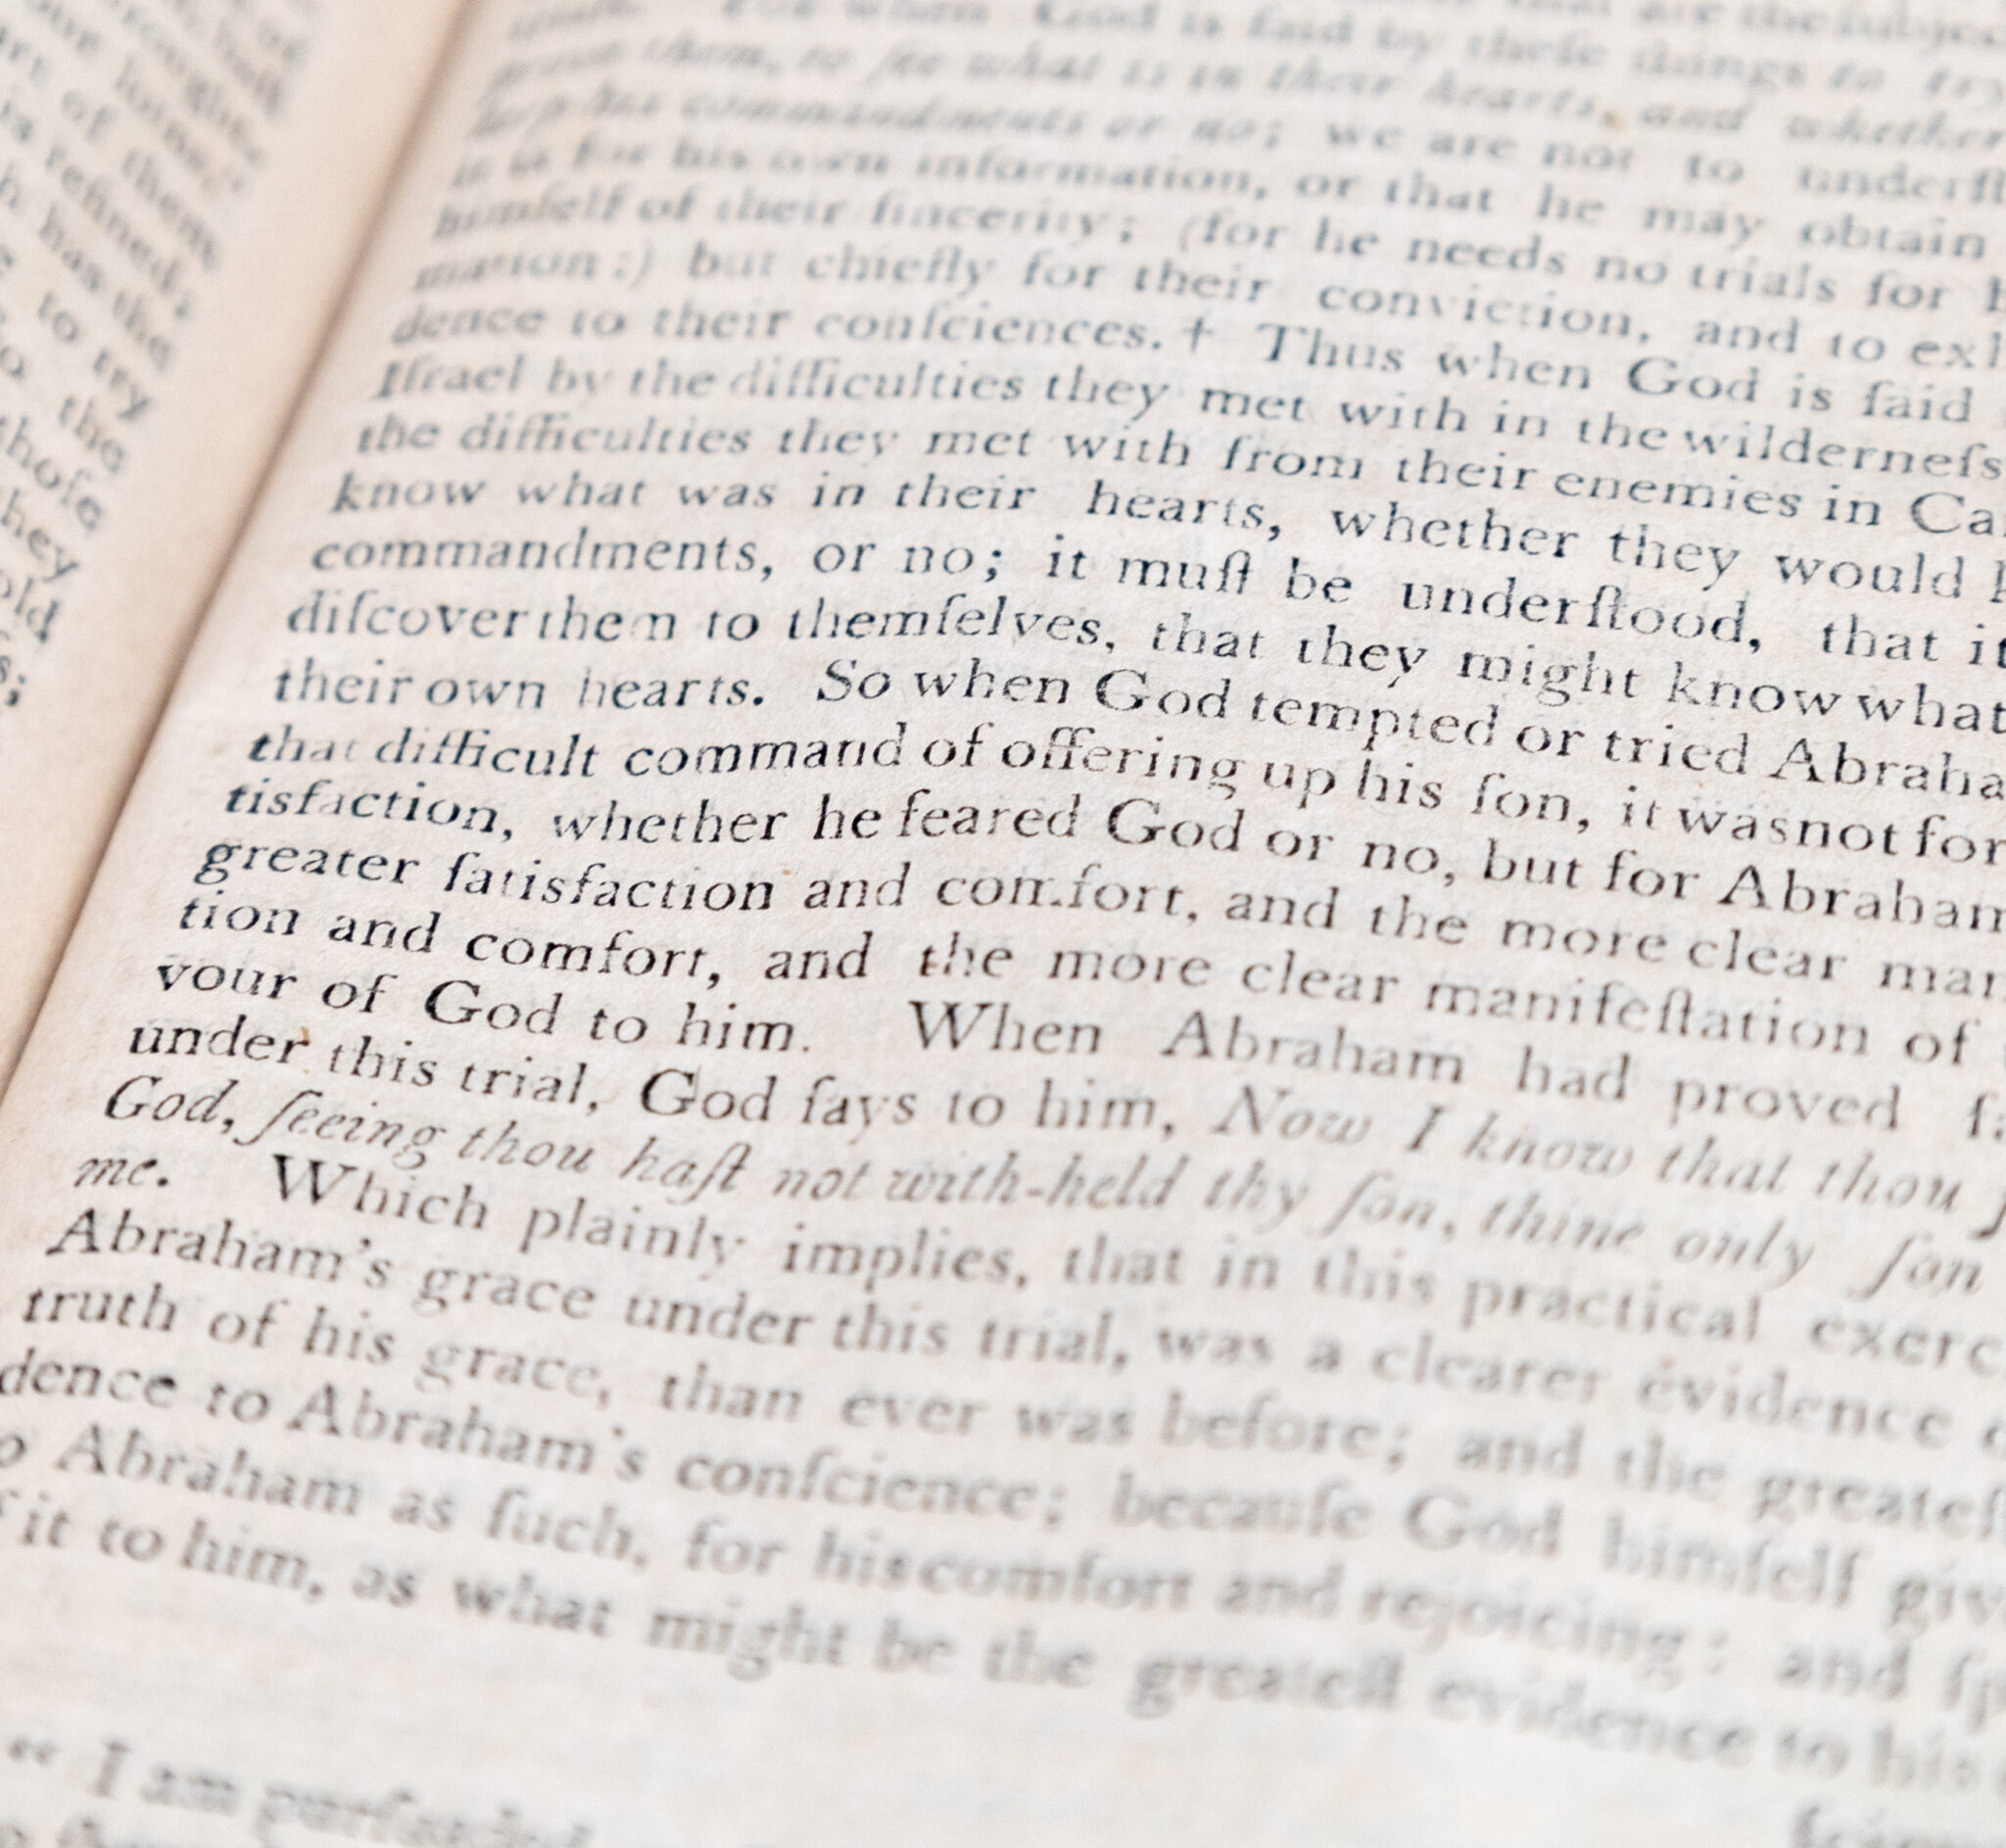 of them
refined;
has the
to try
the
thoſe
they
old
God is ſaid by theſe things to try
them, to ſee what is in their hearts, and whether
his commandments or no; we are not to underſt
it is for his own information, or that he may obtain
himſelf of their ſincerity; (for he needs no trials for h
mation:) but chiefly for their conviction, and to exh
dence to their conſciences.† Thus when God is ſaid
Iſrael by the difficulties they met with in the wilderneſs
the difficulties they met with from their enemies in Ca
know what was in their hearts, whether they would k
commandments, or no; it muſt be underſtood, that it
diſcover them to themſelves, that they might know what
their own hearts. So when God tempted or tried Abraha
that difficult command of offering up his ſon, it was not for
tisfaction, whether he feared God or no, but for Abraham
greater ſatisfaction and comfort, and the more clear man
tion and comfort, and the more clear manifeſtation of
vour of God to him. When Abraham had proved fa
under this trial, God ſays to him, Now I know that thou f
God, ſeeing thou haſt not with-held thy ſon, thine only ſon
me. Which plainly implies, that in this practical exerc
Abraham's grace under this trial, was a clearer evidence o
truth of his grace, than ever was before; and the greateſ
dence to Abraham's conſcience; becauſe God himſelf giv
o Abraham as ſuch, for his comfort and rejoicing; and ſp
f it to him, as what might be the greateſt evidence to his
“ I am perſuaded